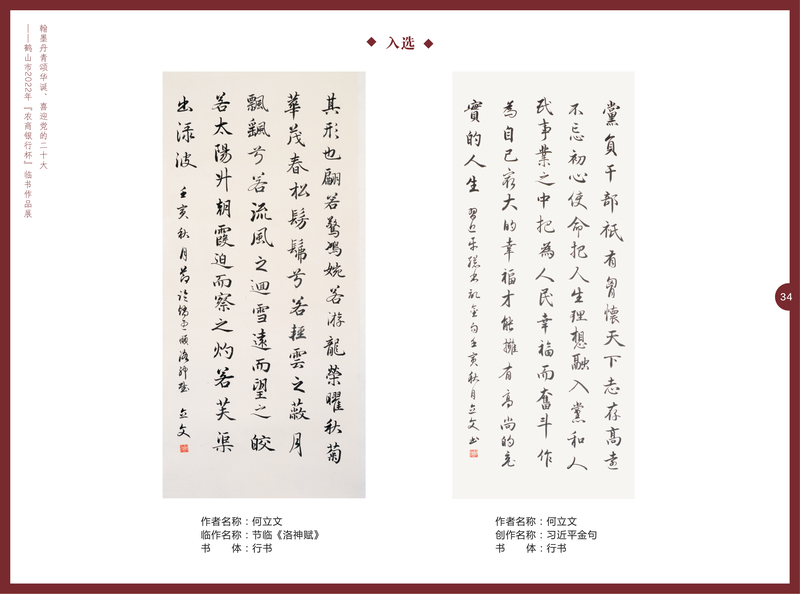 翰墨丹青颂华诞、喜迎党的二十大
——鹤山市2022年『农商银行杯』临书作品展
◆ 入选 ◆
其形也翩若驚鴻婉若游龍榮曜秋菊
華茂春松髣髴兮若輕雲之蔽月
飄飖兮若流風之迴雪遠而望之皎
若太陽升朝霞迫而察之灼若芙渠
出渌波
壬亥秋月節临
立文
黨員干部祇有胷懷天下志存高遠
不忘初心使命把人生理想融入黨和人
民事業之中把為人民幸福而奮斗作
為自己最大的幸福才能擁有高尚的充
實的人生
習近平總書記金句壬亥秋月立文书
34
作者名称：何立文
临作名称：节临《洛神赋》
书　　体：行书
作者名称：何立文
创作名称：习近平金句
书　　体：行书